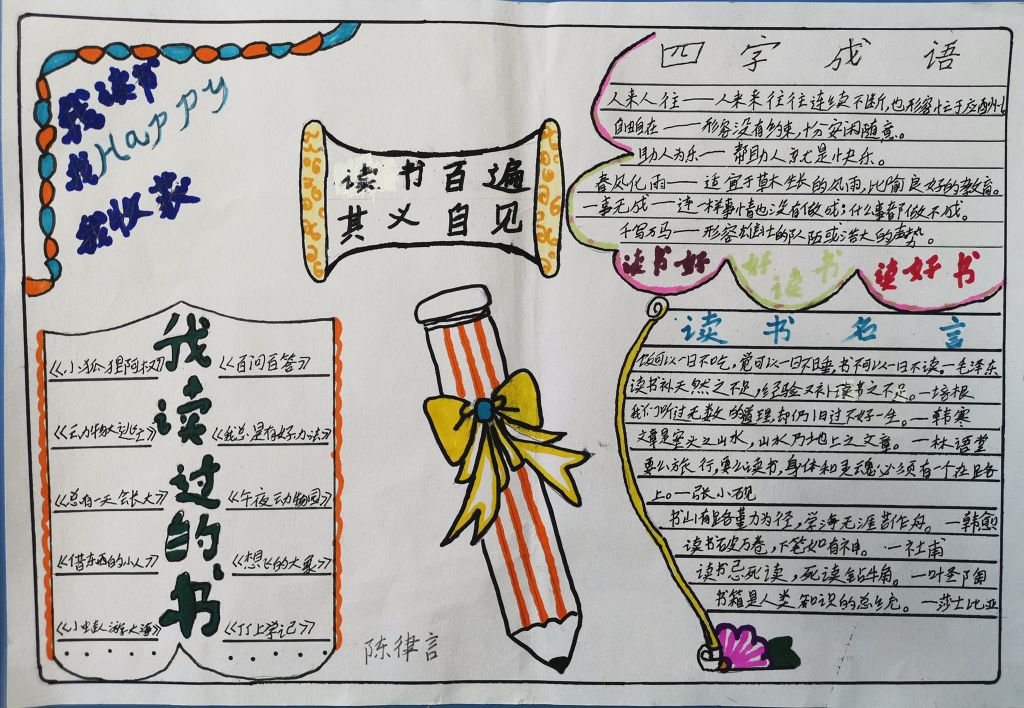 我读书
我HAPPY
我收获
读书百遍
其义自见
四字成语
人来人往——人来来往往连续不断,也形容忙于应酬。
自由自在——形容没有约束,十分安闲随意。
助人为乐——帮助人就是快乐。
春风化雨——适宜于草木生长的风雨,比喻良好的教育。
一事无成——连一样事情也没有做成;什么事都做不成。
千军万马——形容雄壮的队伍或浩大的声势。
读书好
好读书
读好书
我读过的书
《小狐狸阿权》
《百问百答》
《动物大迁徙》
《我总是有好办法》
《总有一天会长大》
《午夜动物园》
《借东西的小人》
《想飞的大象》
《小蛙人游大海》
《丁丁上学记》
陈律言
读书名言
饭可以一日不吃,觉可以一日不睡,书不可以一日不读。—毛泽东
读书补天然之不足,经验又补读书之不足。—培根
我们听过无数的道理,却仍旧过不好一生。—韩寒
文章是案头之山水,山水乃地上之文章。—林语堂
要么旅行,要么读书,身体和灵魂必须有一个在路
上。—张小砚
书山有路勤为径,学海无涯苦作舟。—韩愈
读书破万卷,下笔如有神。—杜甫
读书忌死读,死读钻牛角。—叶圣陶
书籍是人类知识的总统。—莎士比亚